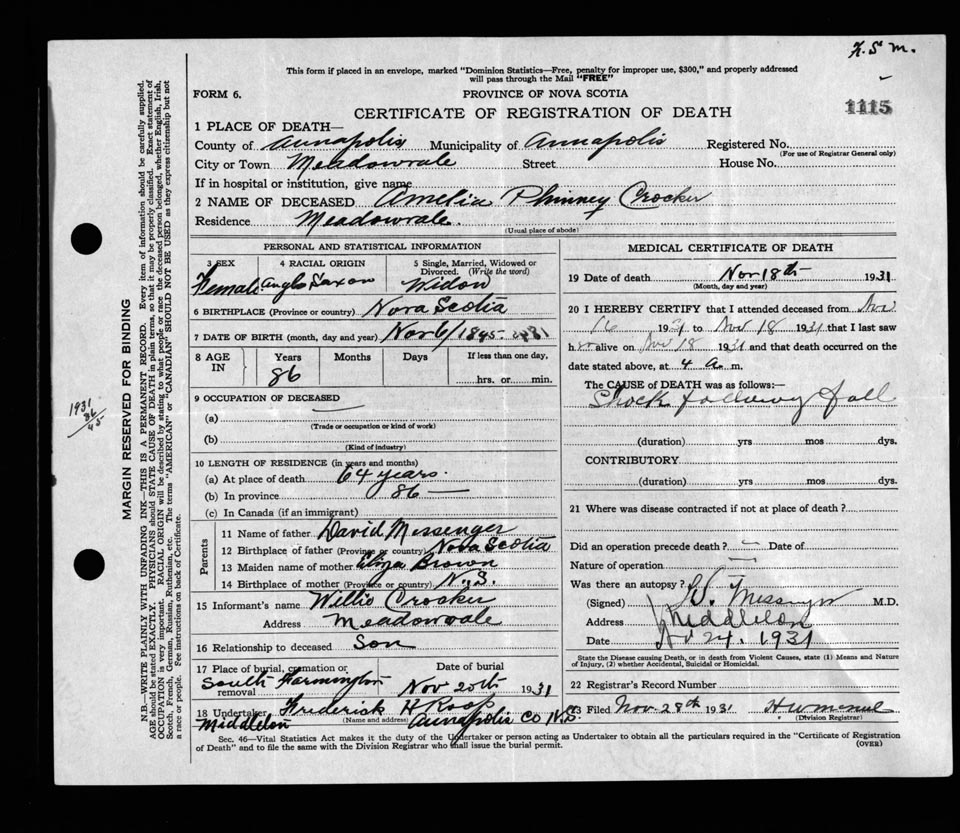 F. S. M.
This form if placed in an envelope, marked "Dominion Statistics—Free, penalty for improper use, $300," and properly addressed
will pass through the Mail "FREE"
FORM 6.
PROVINCE OF NOVA SCOTIA
CERTIFICATE OF REGISTRATION OF DEATH
1115
1 PLACE OF DEATH—
County of Annapolis Municipality of Annapolis Registered No.
(For use of Registrar General only)
City or Town Meadowvale Street House No.
If in hospital or institution, give name
2 NAME OF DECEASED Amelia Phinney Crocker
Residence Meadowvale
(Usual place of abode)
PERSONAL AND STATISTICAL INFORMATION
3 SEX 4 RACIAL ORIGIN 5 Single, Married, Widowed or
Divorced. (Write the word)
Female Anglo Saxon Widow
6 BIRTHPLACE (Province or country) Nova Scotia
7 DATE OF BIRTH (month, day and year) Nov 6/1845
8 AGE IN Years Months Days If less than one day,
86
hrs. or min.
9 OCCUPATION OF DECEASED
(a)
(Trade or occupation or kind of work)
(b)
(Kind of industry)
10 LENGTH OF RESIDENCE (in years and months)
(a) At place of death 64 years
(b) In province 86 —
(c) In Canada (if an immigrant)
Parents
11 Name of father David Messenger
12 Birthplace of father (Province or country) Nova Scotia
13 Maiden name of mother Eliza Brown
14 Birthplace of mother (Province or country) N.S.
15 Informant's name Willis Crocker
Address Meadowvale
16 Relationship to deceased Son
17 Place of burial, cremation or Date of burial
South Farmington
removal Nov 20th 1931
18 Undertaker Frederick H Roop
(Name and address)
Middleton Annapolis Co N.S.
MEDICAL CERTIFICATE OF DEATH
19 Date of death Nov 18th 1931
(Month, day and year)
20 I HEREBY CERTIFY that I attended deceased from Nov
16 1931 to Nov 18 1931 that I last saw
her alive on Nov 18 1931 and that death occurred on the
date stated above, at 4 a. m.
The CAUSE of DEATH was as follows:—
Shock following fall
(duration) yrs mos dys.
CONTRIBUTORY
(duration) yrs mos dys.
21 Where was disease contracted if not at place of death?
Did an operation precede death? — Date of
Nature of operation —
Was there an autopsy?
(Signed) Messenger M.D.
Address Middleton
Date Nov 24. 1931
State the Disease causing Death, or in death from Violent Causes, state (1) Means and Nature
of Injury, (2) whether Accidental, Suicidal or Homicidal.
22 Registrar's Record Number
23 Filed Nov. 28th 1931
(Division Registrar)
Sec. 46—Vital Statistics Act makes it the duty of the Undertaker or person acting as Undertaker to obtain all the particulars required in the "Certificate of Registration
of Death" and to file the same with the Division Registrar who shall issue the burial permit.
(OVER)
MARGIN RESERVED FOR BINDING
1931
86
45
N.B.—WRITE PLAINLY WITH UNFADING INK—THIS IS A PERMANENT RECORD. Every item of information should be carefully supplied.
AGE should be stated EXACTLY. PHYSICIANS should STATE CAUSE OF DEATH in plain terms, so that it may be properly classified. Exact statement of
OCCUPATION is very important. RACIAL ORIGIN will be described by stating to what people or race the deceased person belonged, whether English, Irish,
Scotch, French, German, Russian, Ruthenian, etc. The terms "AMERICAN" or "CANADIAN" SHOULD NOT BE USED as they express citizenship but not
a race or people. See instructions on back of Certificate.